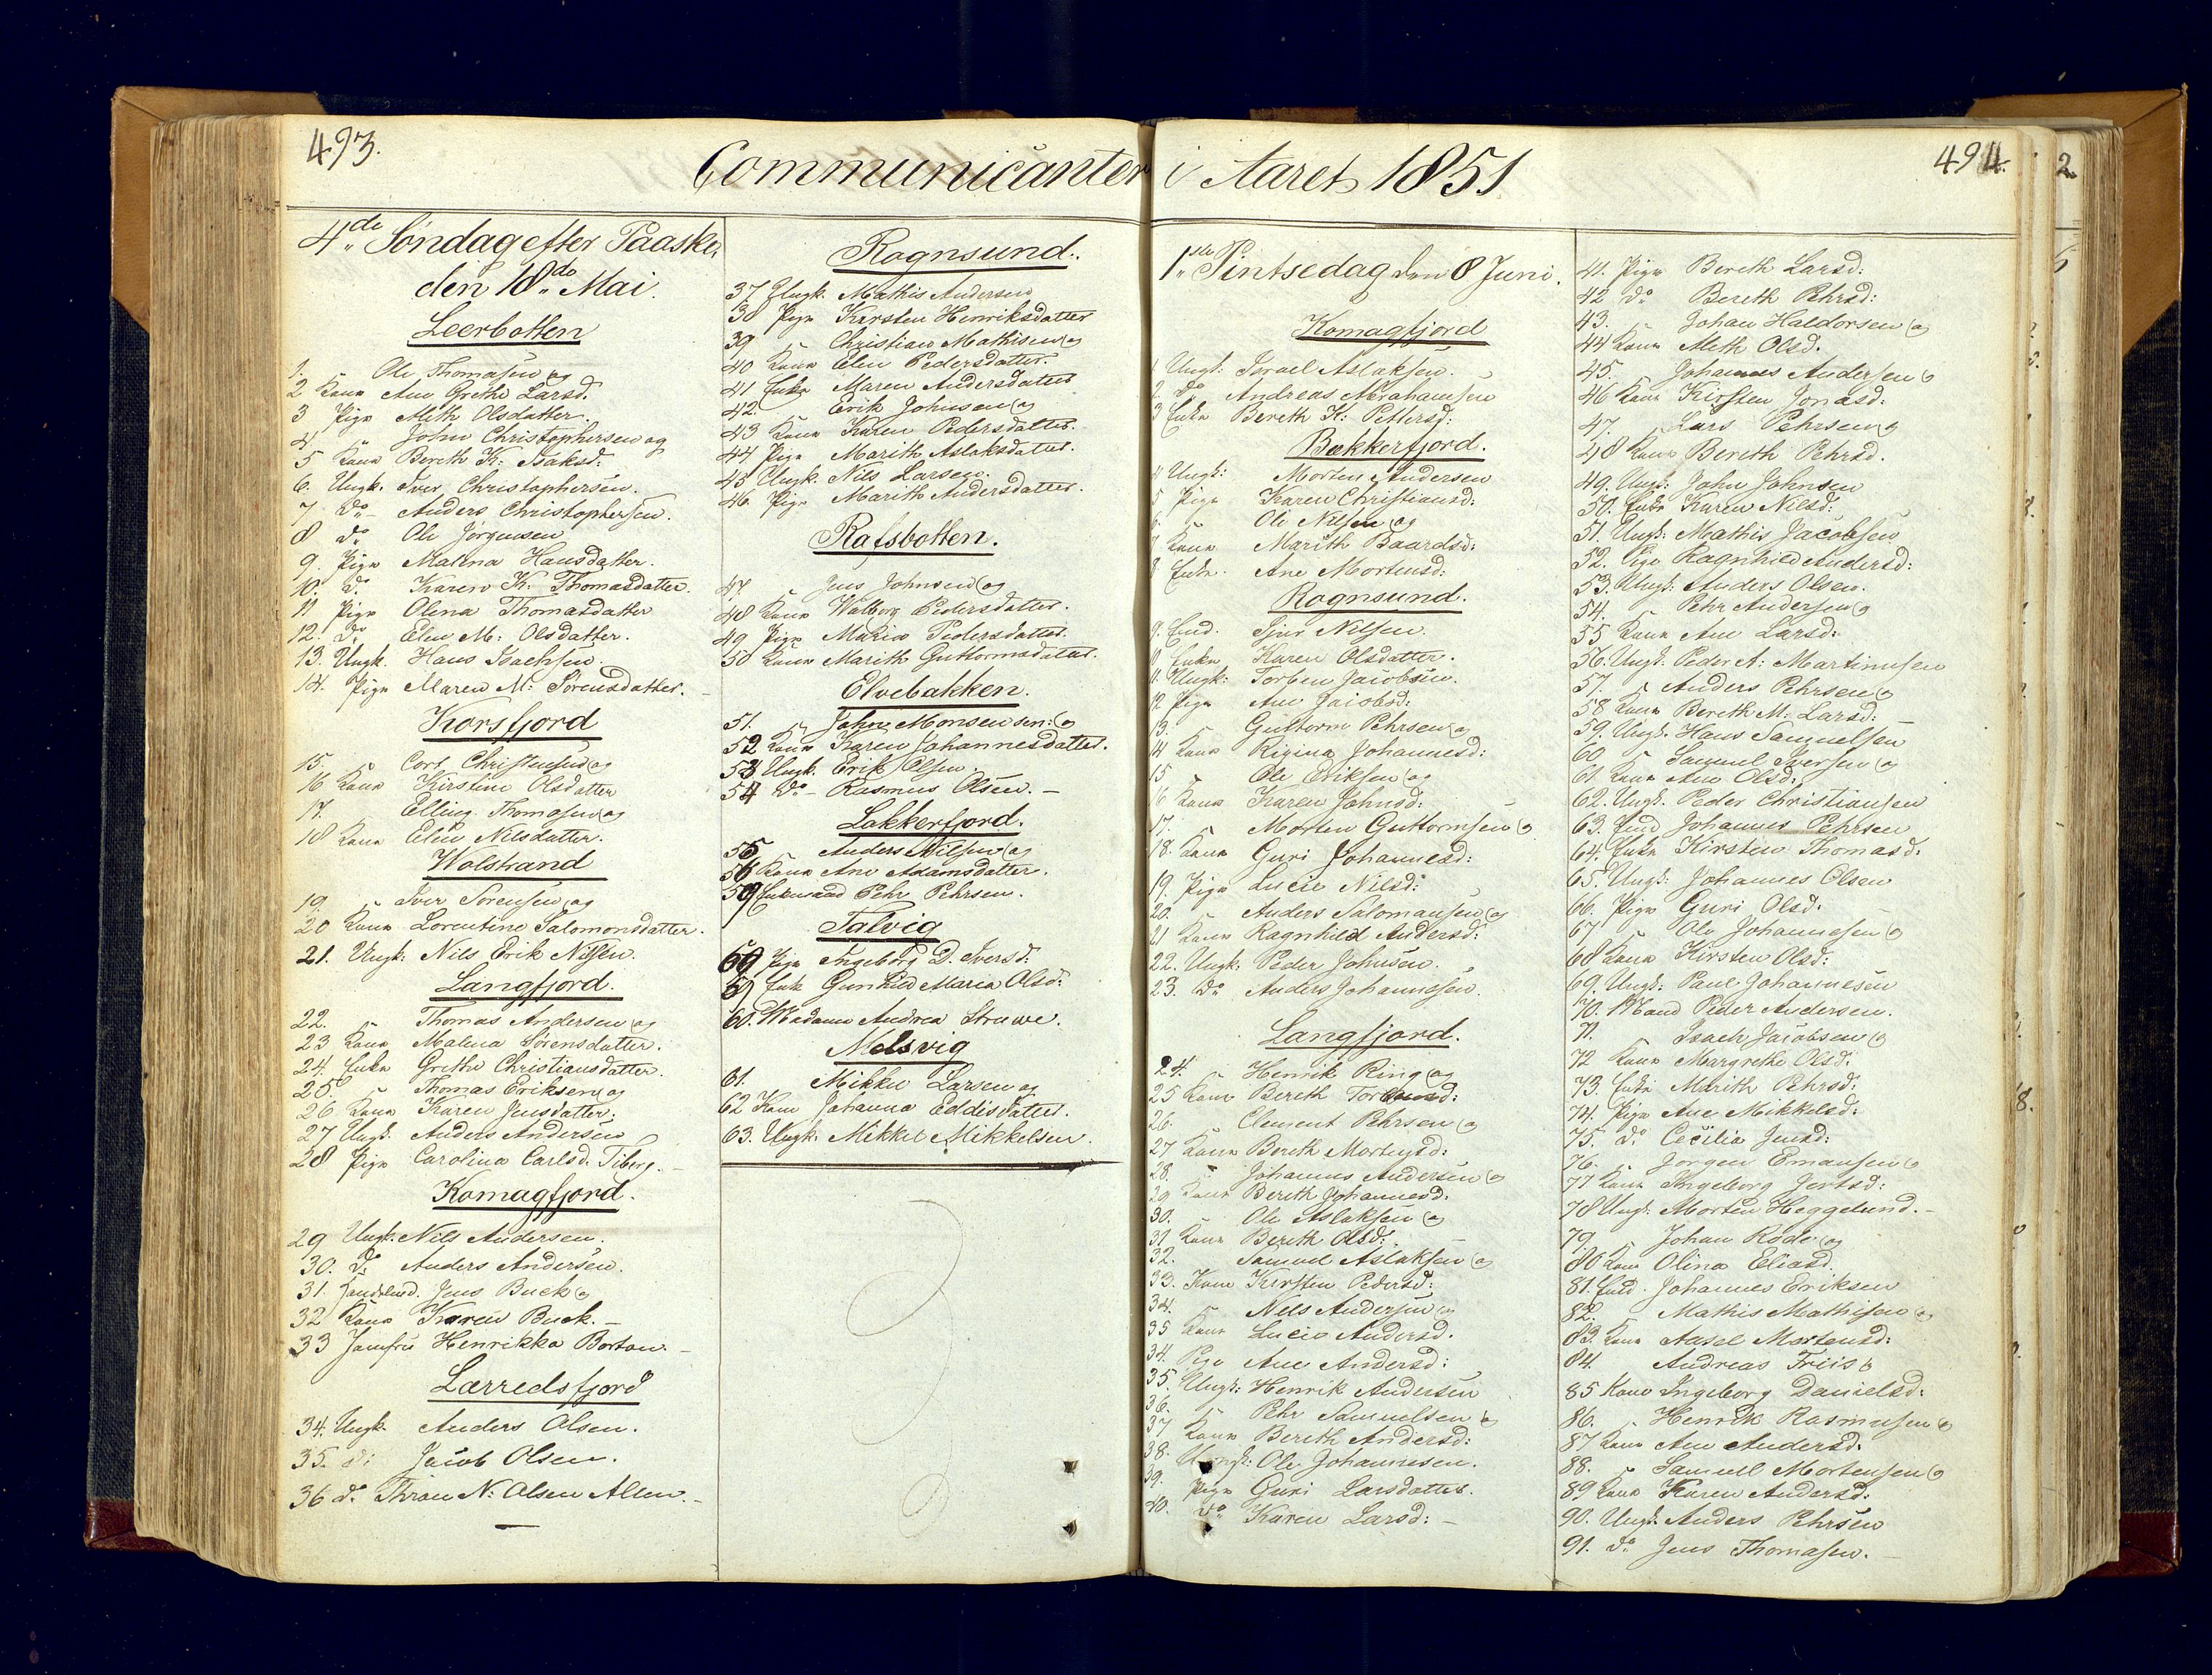 493.
Communicanter i Aaret 1851
494.
4de Søndag efter Paaske,
den 18de Mai.
Leerbotten
1. " Ole Thomasen og
2 Kone Ane Grethe Larsd.
3 Pige Meth Olsdatter.
4 " John Christophersen og
5 Kone Bereth K: Isaksd:
6. Ungk. Iver Christophersen.
7 do - Anders Christophersen.
8 do Ole Jørgensen
9. Pige Malena Hansdatter.
10. do. Karen K: Thomasdatter.
11 Pige Olena Thomasdatter
12. do Elen M: Olsdatter.
13. Ungk. Hans Isachsen.
14. Pige Maren M: Sørensdatter.
Korsfjord
15. " Carl Christensen og
16 Kone Kirstine Olsdatter
17. Elling Thomasen og
18 Kone Elen Nilsdatter.
Wolstrand
19 " Iver Sørensen og
20 Kone Lorentine Salomonsdatter.
21. Ungk: Nils Erik Nilsen.
Langfjord.
22. " Thomas Andersen og
23 Kone Malena Sørensdatter.
24. Enke Grethe Christiansdatter.
25. " Thomas Eriksen og
26 Kone Karen Jensdatter.
27 Ungk. Anders Andersen
28 Pige Carolina Carlsd. Tiberg.
Komagfjord.
29 Ungk. Nils Andersen.
30. do Anders Andersen.
31. Handelsmd. Jens Buck og
32 Kone Karen Buck. -
33 Jomfru Henrikka Borton. -
Lærredsfjord
34. Ungk. Anders Olsen.
35. do: Jacob Olsen.
36 do Thron N: Olsen Alten. -
Rognsund.
37 Ungk. Mathis Andersen
38 Pige Kirsten Henriksdatter
39 " Christian Mathisen og
40 Kone Elen Pedersdatter.
41 Enke Maren Andersdatter
42. " Erik Johnsen og
43 Kone Karen Pedersdatter.
44 Pige Marith Aslaksdatter.
45 Ungk. Nils Larsen.
46. Pige Marith Andersdatter.
Rafsbotten.
47. " Jens Johnsen og
48 Kone Walborg Pedersdatter.
49 Pige Maria Pedersdatter.
50 Kone Marith Guttormsdatter.
Elvebakken.
51. " John Monsen sen: og
52 Kone Karen Johannesdatter.
53 Ungk. Erik Olsen.
54 do - Rasmus Olsen. -
Lakkerfjord.
55 " Anders Nilsen og
56 Kone Ane Adamsdatter.
57 Enkemand Pehr Pehrsen.
Talvig
Pige Ingeborg D. Iversd:
59 Enke Gunhild Maria Olsd:
60. Madame Andrea Struwe.
Melsvig
61. Mikkel Larsen og
62 Kone Johanna Eddisdatter.
63. Ungk. Mikkel Mikkelsen.
1ste Pintsedag den 8 Juni.
Komagfjord
1 Ungk: Israel Aslaksen.
2 do Andreas Abrahamsen
3 Enke Bereth K: Pettersd:
Bekkerfjord.
4 Ungk: Morten Andersen
5 Pige Karen Christiansd:
6. " Ole Nilsen og
7 Kone Marith Baardsd:
8 Enke. Ane Mortensd:
Rognsund.
9. Emd. Siver Nilsen.
10 Enke Karen Olsdatter.
11. Ungk: Torben Jacobsen.
12 Pige Ane Jacobsd:
13. " Guttorm Pehrsen og
14 Kone Rigina Johannesd:
15 " Ole Eriksen og
16 Kone Karen Johnsd:
17. " Morten Guttormsen og
18. Kone Guri Johannesd:
19. Pige Lucie Nilsd:
20. " Anders Salomonsen og
21 Kone Ragnhild Andersd:
22. Ungk: Peder Johnsen.
23. do Anders Johannesen.
Langfjord.
24. " Henrik Ring og
25 Kone Bereth
26. " Clement Pehrsen og
27 Kone Bereth Mortensd:
28. " Johannes Andersen og
29 Kone Bereth Johannesd.
30. " Ole Aslaksen og
31 Kone Bereth Olsd:
32. " Samuel Aslaksen og
33. Kone Kirsten Pedersd:
34. " Nels Andersen og
35 Kone Lucie Andersd.
34. Pige Ane Andersd:
35. Ungk: Henrik Andersen
36. " Pehr Samuelsen og
37 Kone Bereth Andersd:
38. Ungk: Ole Johannesen.
39. Pige Guri Larsdatter.
40. do Karen Larsd: -
41. Pige Bereth Larsd:
42 do Bereth Pehrsd:
43. " Johan Haldorsen og
44 Kone Meth Olsd.
45. Johannes Andersen og
46 Kone Kirsten Jonasd:
47. " Lars Pehrsen og
48 Kone Bereth Pehrsd.
49. Ungk: John Johnsen
50. Enke Karen Nilsd:
51. Ungk: Mathis Jacobsen
52. Pige Ragnhild Andersd:
53. Ungk: Anders Olsen.
54. " Pehr Andersen og
55 Kone Ane Larsd:
56. Ungk. Peder A: Martinusen
57. " Anders Pehrsen og
58 Kone Bereth M: Larsd:
59. Ungk: Hans Samuelsen
60 " Samuel Iversen og
61 Kone Ane Olsd:
62. Ungk: Peder Christiansen
63. Emd Johannes Pehrsen
64. Enke Kirstina Thomasd.
65. Ungk: Johannes Olsen
66. Pige Guri Olsd.
67 " Ole Johannesen og
68 Kone Kirsten Olsd:
69. Ungk: Paul Johannesen
70. Mand Peder Andersen.
71. Isach Jacobsen og
72 Kone Margrethe Olsd.
73. Enke Marith Pehrsd:
74. Pige Ane Mikkelsd:
75. do Cecilia Jensd:
76. " Jørgen Emansen og
77 Kone Ingeborg Jertsd:
78 Ungk. Morten Heggelund. -
79 " Johan Røde og
80 Kone Olina Eliasd.
81. Emd. Johannes Eriksen
82. " Mathis Mathisen og
83. Kone Assel Mortensd:
84. Andreas Friis og
85 Kone Ingeborg Danielsd:
86. " Henrik Rasmusen og
87 Kone Ane Andersd.
88. " Samuel Mortensen og
89 Kone Karen Andersd:
90. Ungk. Anders Pehrsen
91. do Jens Thomasen. -